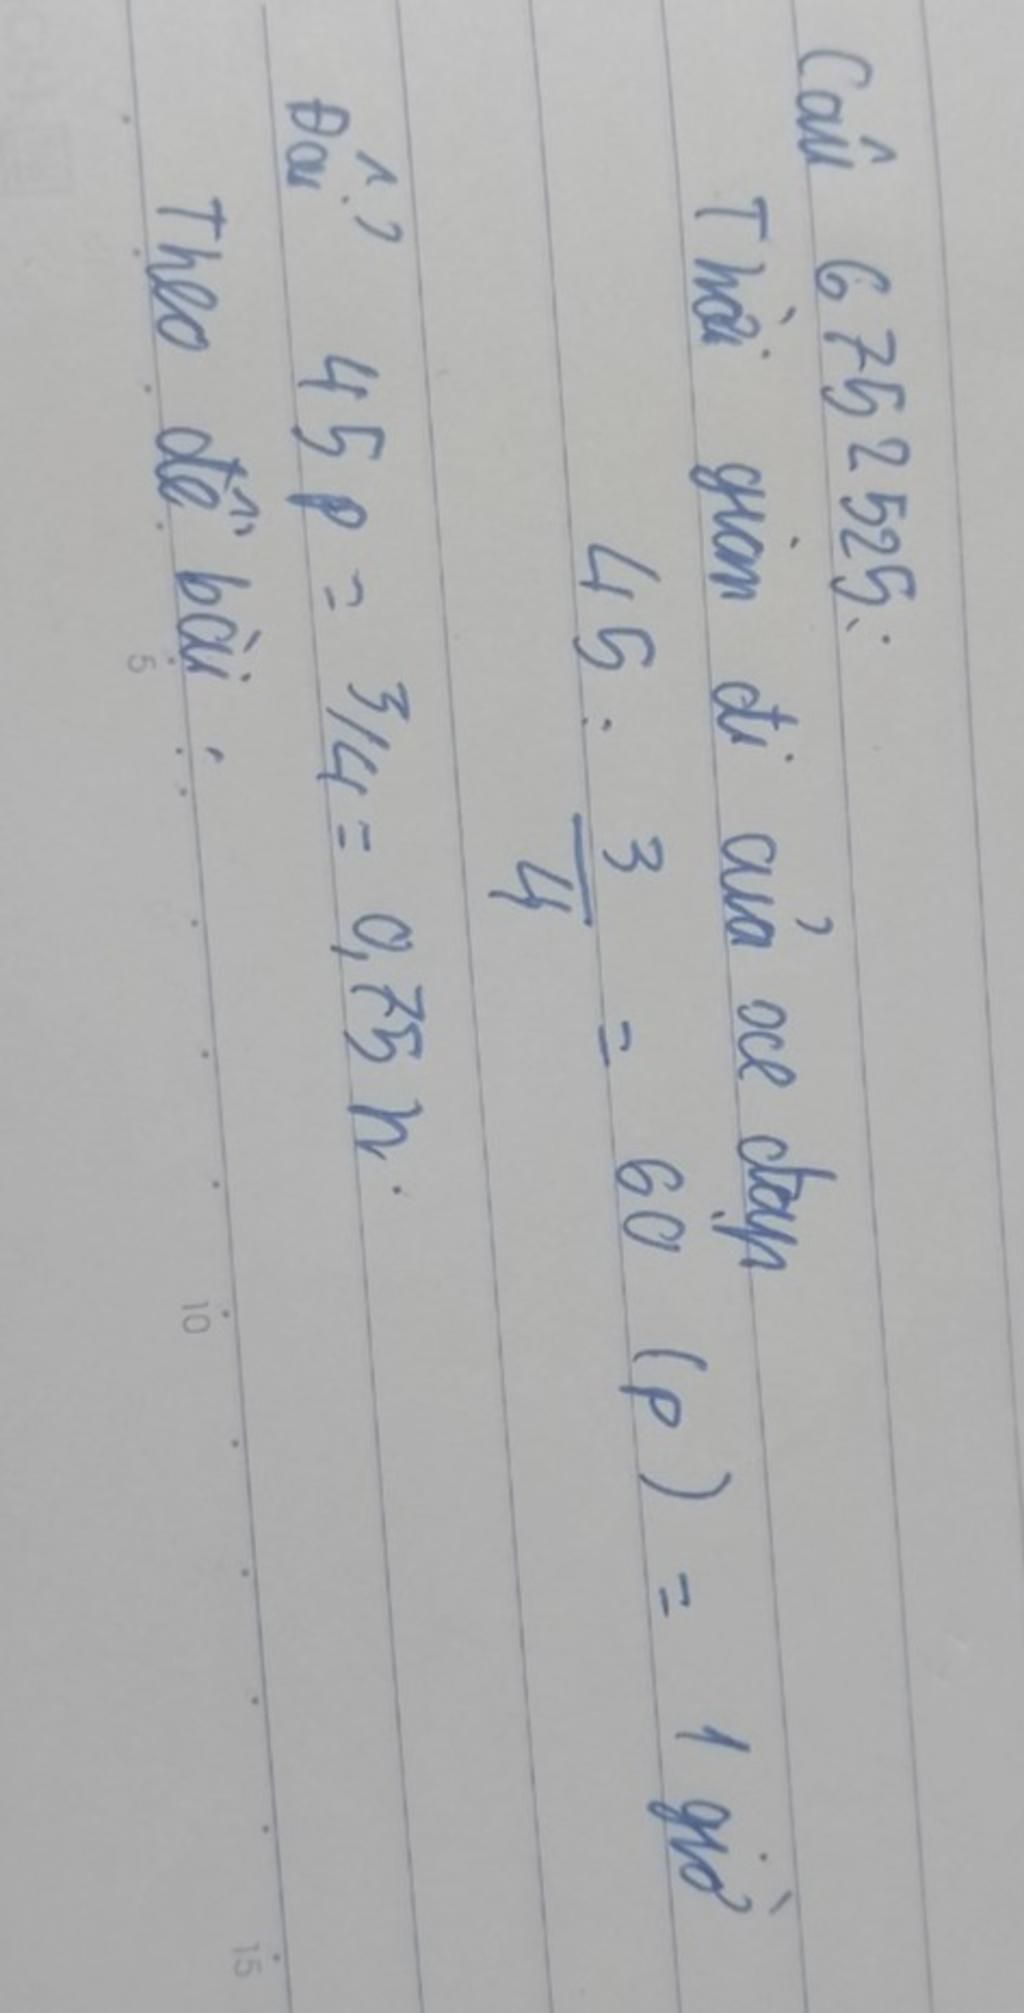 Câu 6752525:
Thời gian đi của xe đạp
45 : 3/4 = 60 (p) = 1 giờ
Đổi 45p = 3/4 = 0,75h.
Theo đề bài :
5 10 15